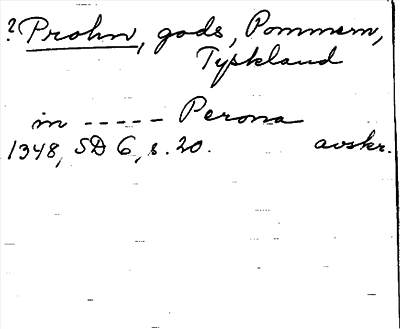 ? Prohn, gods, Pommern,
Tyskland
in ----- Perona
1348, SD 6, s. 20. avskr.